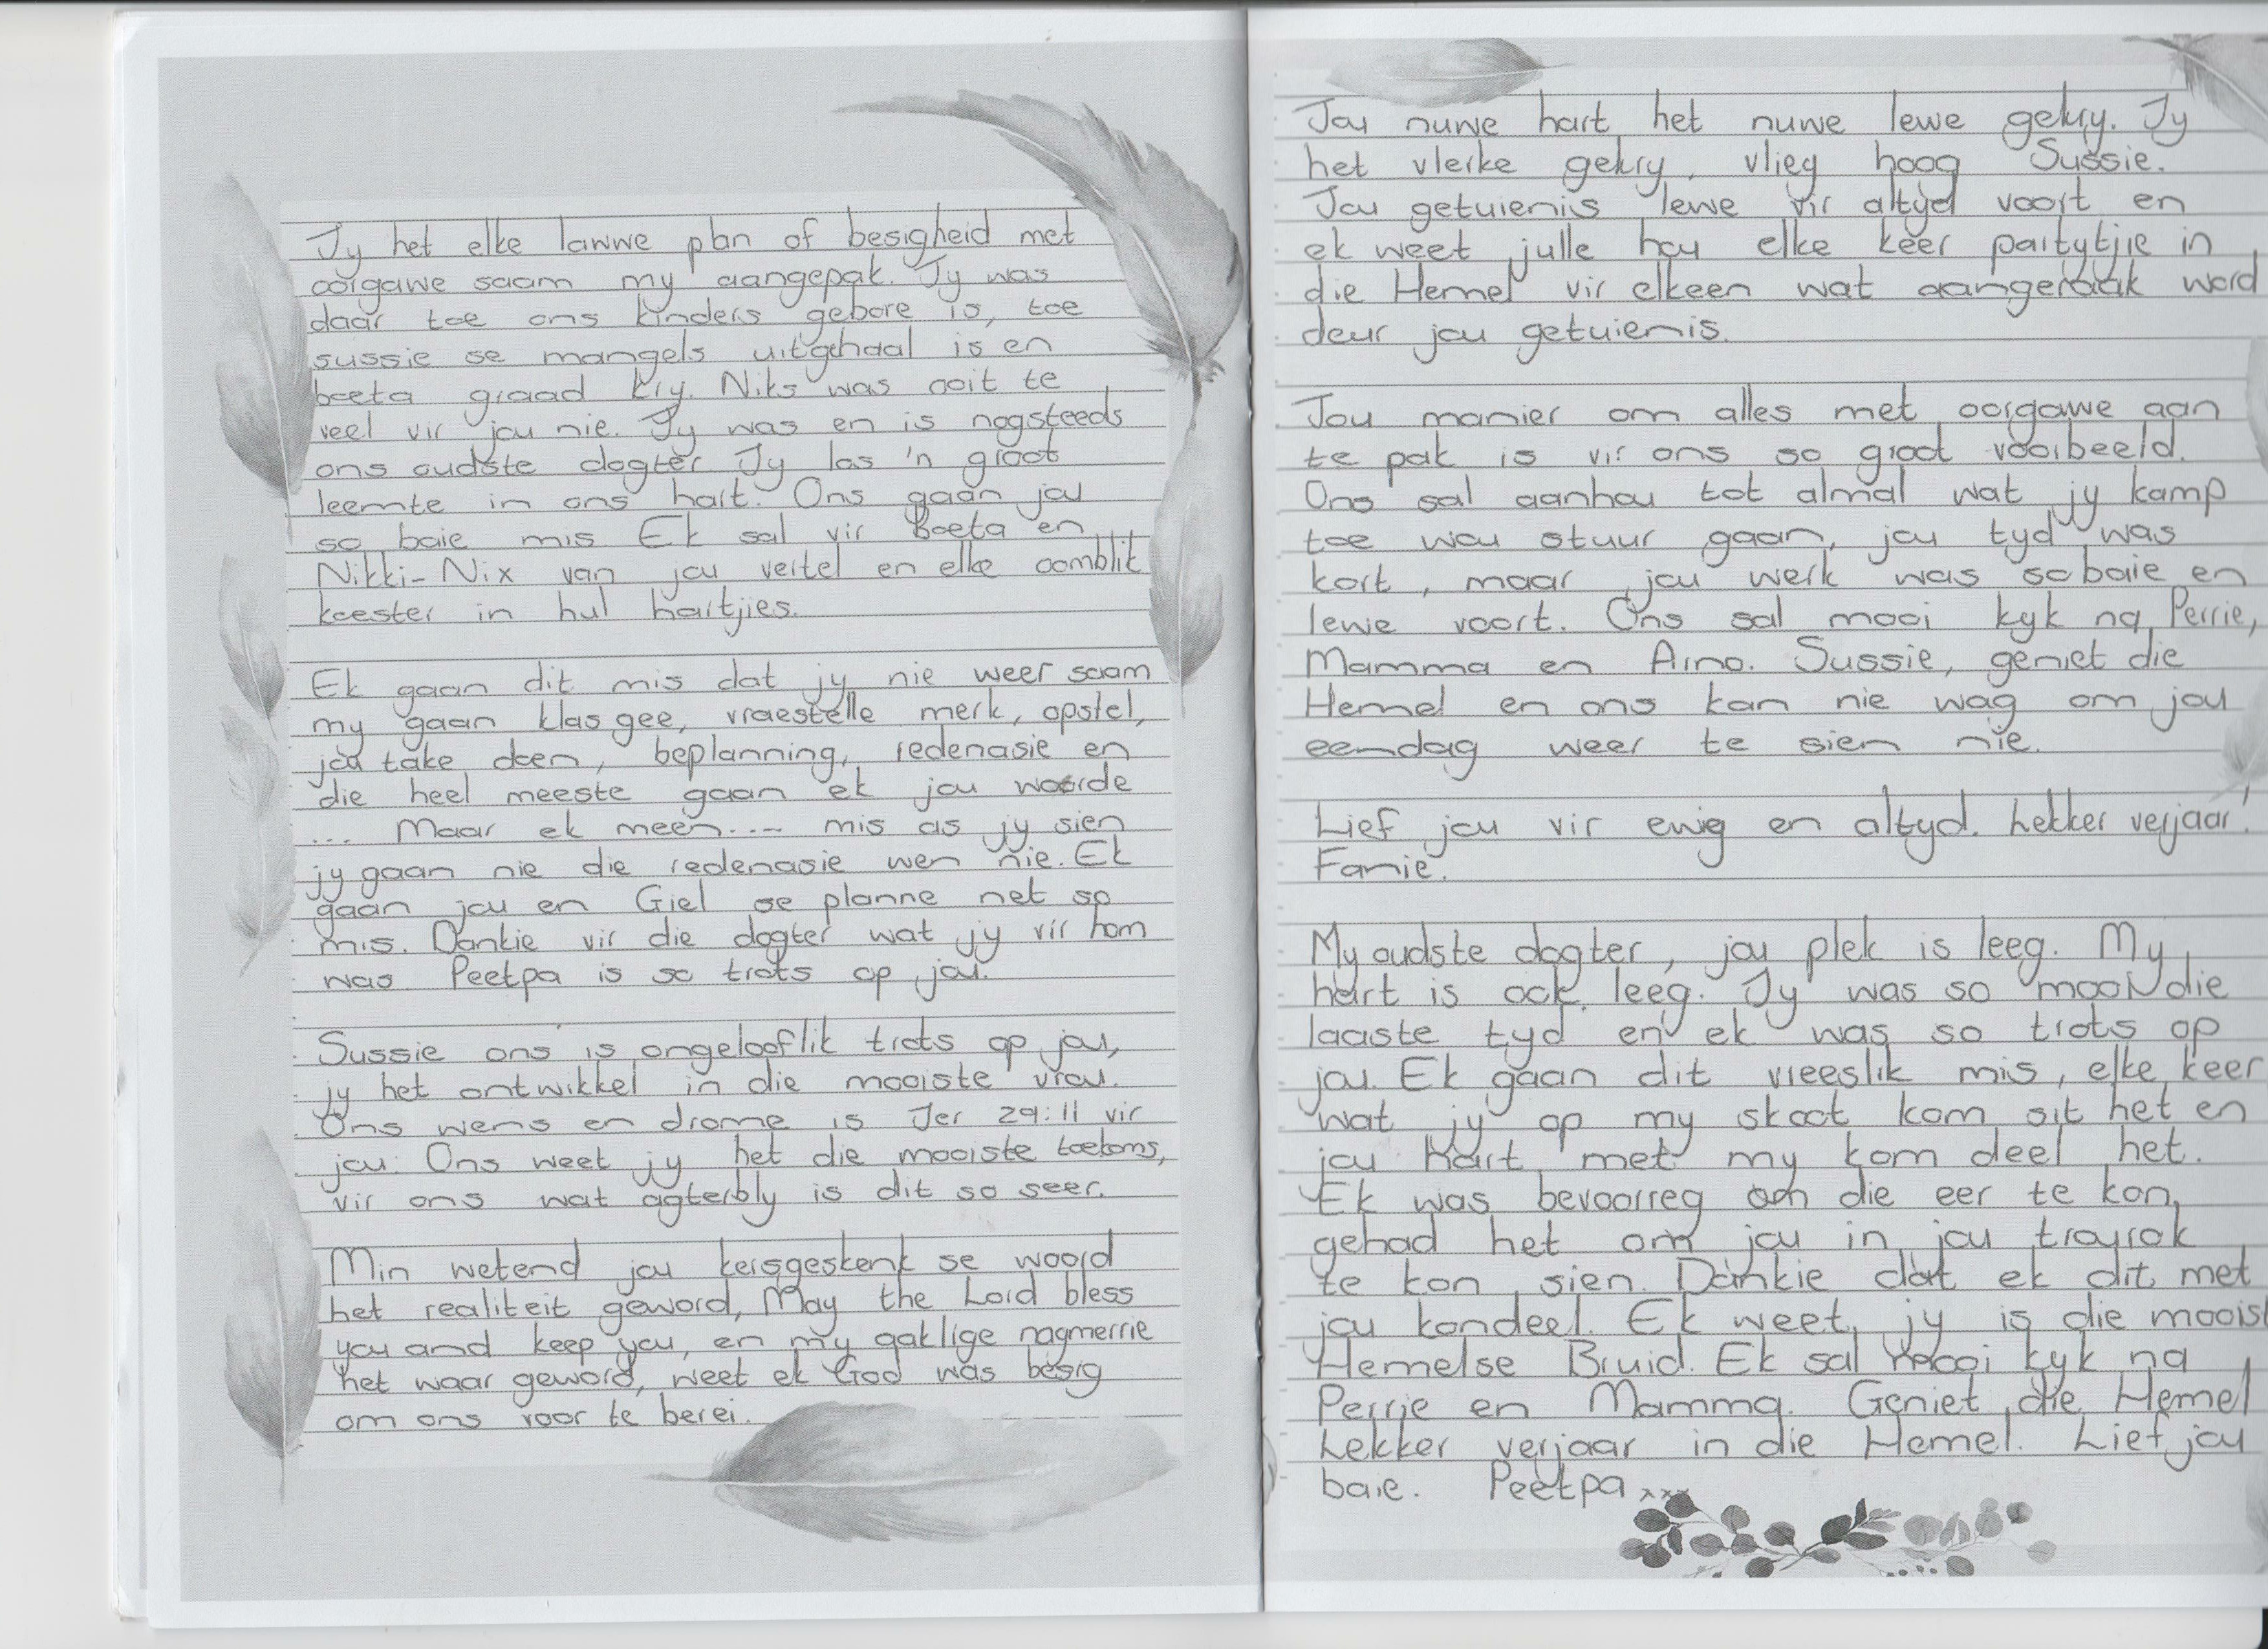 Jy het elke lawwe plan of besigheid met
oorgawe saam my aangepak. Jy was
daar toe ons kinders gebore is, toe
sussie se mangels uitgehaal is en
boeta graad kry. Niks was ooit te
veel vir jou nie. Jy was en is nogsteeds
ons oudste dogter. Jy los 'n groot
leemte in ons hart. Ons gaan jou
so baie mis. Ek sal vir Boeta en
Nikki-Nix van jou vertel en elke oomblik
koester in hul hartjies.
Ek gaan dit mis dat jy nie weer saam
my gaan klas gee, vraestelle merk, opstel,
jou take doen, beplanning, redenasie en
die heel meeste gaan ek jou woorde
... Maar ek meen.... mis as jy sien
jy gaan nie die redenasie wen nie. Ek
gaan jou en Giel se planne net so
mis. Dankie vir die dogter wat jy vir hom
was. Peetpa is so trots op jou.
Sussie ons is ongelooflik trots op jou,
jy het ontwikkel in die mooiste vrou.
Ons wens en drome is Jer 29:11 vir
jou. Ons weet jy het die mooiste toekoms,
vir ons wat agterbly is dit so seer.
Min wetend jou kersgeskenk se woord
het realiteit geword, May the Lord bless
you and keep you, en my aaklige nagmerrie
het waar geword, weet ek God was besig
om ons voor te berei.
Jou nuwe hart het nuwe lewe gekry. Jy
het vlerke gekry, vlieg hoog Sussie.
Jou getuienis lewe vir altyd voort en
ek weet julle hou elke keer partytjie in
die Hemel vir elkeen wat aangeraak word
deur jou getuienis.
Jou manier om alles met oorgawe aan
te pak is vir ons so groot voorbeeld.
Ons sal aanhou tot almal wat jy kamp
toe wou stuur gaan, jou tyd was
kort, maar jou werk was so baie en
lewe voort. Ons sal mooi kyk na Perrie,
Mamma en Arno. Sussie, geniet die
Hemel en ons kan nie wag om jou
eendag weer te sien nie.
Lief jou vir ewig en altyd. Lekker verjaar!
Famie.
My oudste dogter, jou plek is leeg. My
hart is ook leeg. Jy was so mooi die
laaste tyd en ek was so trots op
jou. Ek gaan dit vreeslik mis, elke keer
wat jy op my skoot kom sit het en
jou hart met my kom deel het.
Ek was bevoorreg om die eer te kon
gehad het om jou in jou trourok
te kon sien. Dankie dat ek dit met
jou kondeel. Ek weet jy is die moois
Hemelse Bruid. Ek sal mooi kyk na
Perrie en Mamma. Geniet die Hemel
Lekker verjaar in die Hemel. Lief jou
baie. Peetpa xxx